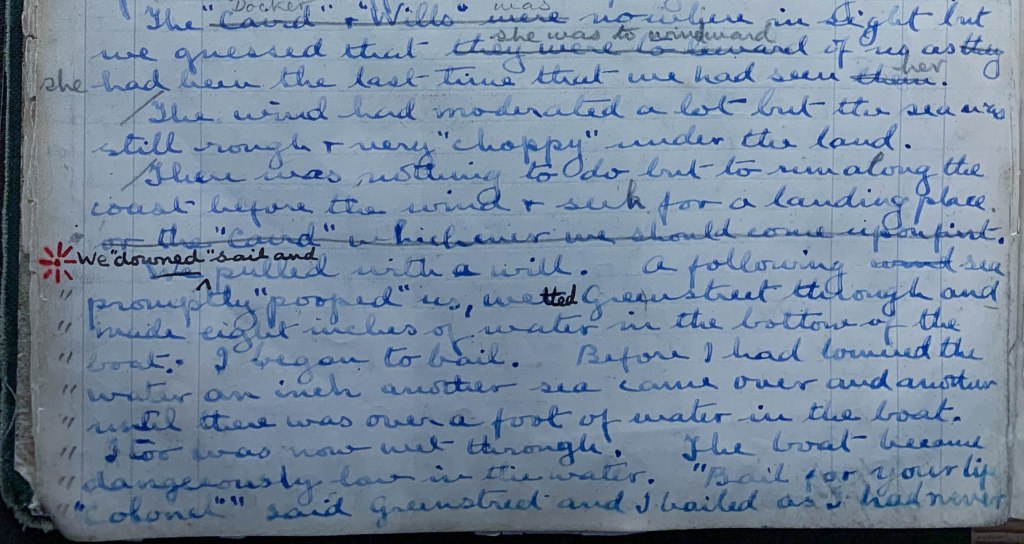 Docker was
The "Caird" + "Wills" were nowhere in sight but
she was to windward
we guessed that they were to leward of us as they
she had been the last time that we had seen them. her
The wind had moderated a lot but the sea was
still rough + very "choppy" under the land.
There was nothing to do but to run along the
coast before the wind + seek for a landing place.
or the "Caird" whichever we should come upon first.
We "downed" sail and
We pulled with a will. A following wind sea
" promptly "pooped" us, wetted Greenstreet through and
" made eight inches of water in the bottom of the
" boat. I began to bail. Before I had lowered the
" water an inch another sea came over and another
" until there was over a foot of water in the boat.
" I too was now wet through. The boat became
" dangerously low in the water. "Bail for your life
" "Colonel"" said Greenstreet and I bailed as I had never